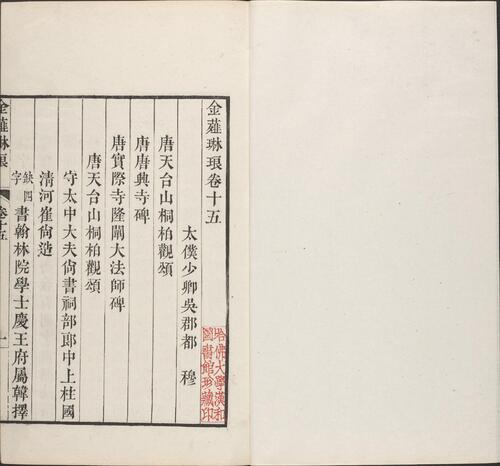 金薤琳琅卷十五
太僕少卿吳郡都穆
唐天台山桐柏觀頌
唐唐興寺碑
唐實際寺隆闡大法師碑
唐天台山桐柏觀頌
守太中大夫尙書祠部郎中上柱國
清河崔尙造
缺四字書翰林院學士慶王府屬韓擇
金薤琳琅
卷十五
一
哈佛大學漢和圖書館珍藏印